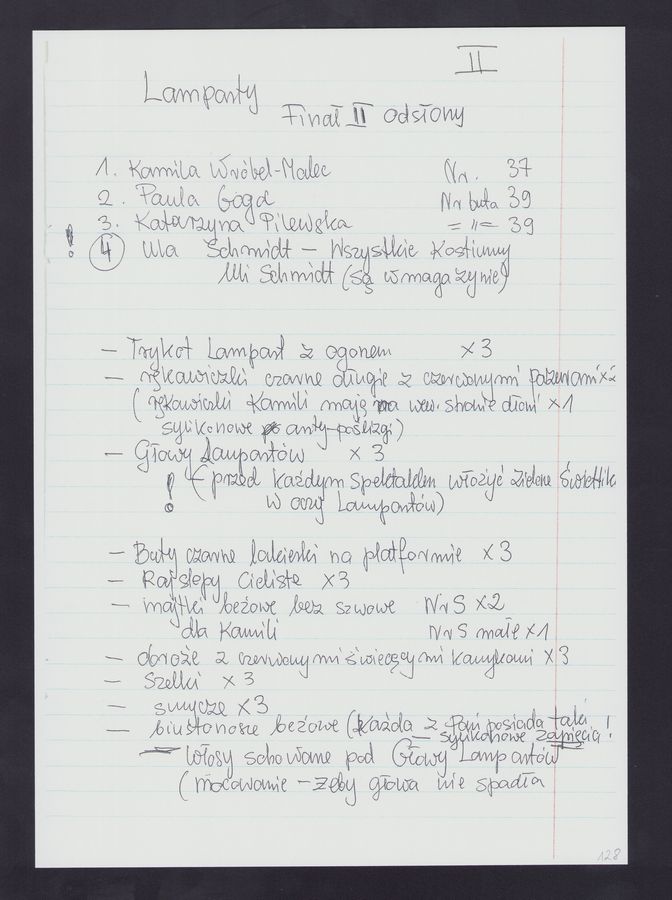 II
Lamparty
Finał II odsłony
1. Kamila Wróbel-Malec Nr. 37
2. Paula Gogol Nr buta 39
3. Katarzyna Pilewska = " = 39
! 4 Ula Schmidt – Wszystkie kostiumy
Uli Schmidt (są w magazynie)
– Trykot Lampart z ogonem x 3
– rękawiczki czarne długie z czerwonymi pazurami x 2
(rękawiczki Kamili mają na wew. stronie dłoni x 1
sylikonowe anty-poślizgi)
– Głowy Lampartów x 3
! (przed każdym spektaklem włożyć zielone światełka
w oczy Lampartów)
– Buty czarne lakierki na platformie x 3
– Rajstopy cieliste x 3
– majtki beżowe bez szwowe Nr S x 2
dla Kamili Nr S małe x 1
– obroże z czerwonymi świecącymi kamykami x 3
– Szelki x 3
– smycze x 3
– biustonosze beżowe (każda z Pań posiada taki
– sylikonowe zapięcia !
– włosy schowane pod Głowy Lampartów
(mocowanie – żeby głowa nie spadła
128